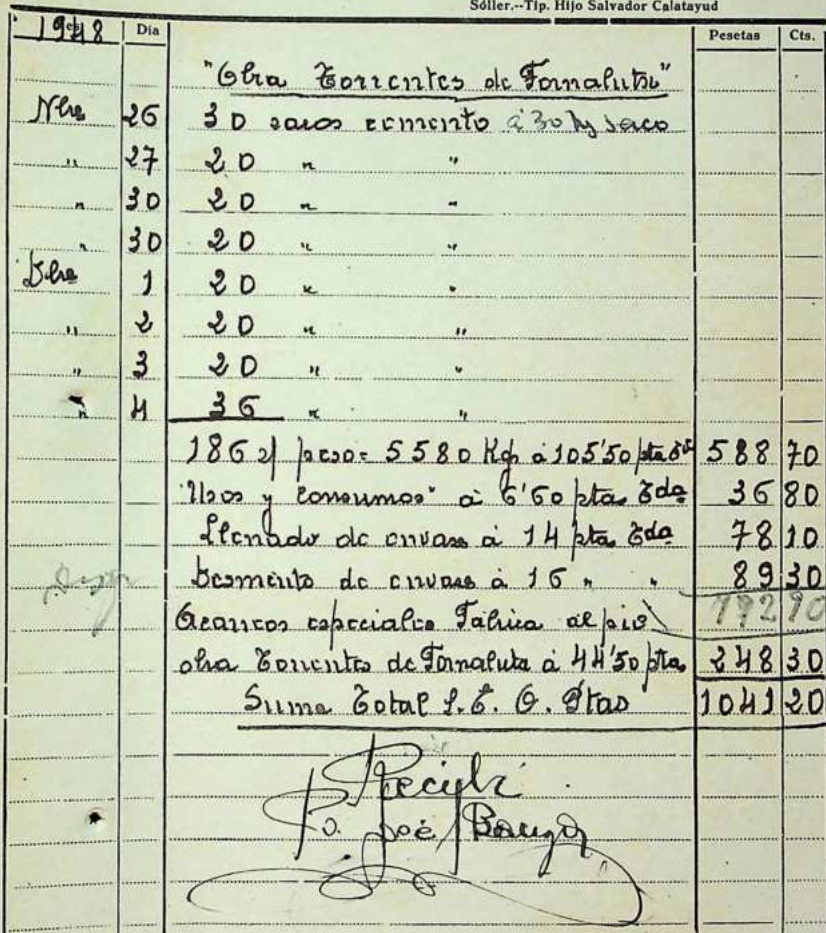 Sóller.--Tip. Hijo Salvador Calatayud
1948 Día Pesetas Cts.
"Obra Torrentes de Fornalutx"
Nbre 26 30 sacos cemento a 30 kg saco
" 27 20 " "
" 30 20 " "
" 30 20 " "
Dbre 1 20 " "
" 2 20 " "
" 3 20 " "
" 4 36 " "
186 s/ peso = 5580 Kgs a 105'50 ptas 588 70
"Usos y consumos" a 6'60 ptas Tda 36 80
Llenado de envase a 14 ptas Tda 78 10
Desmérito de envase a 16 " " 89 30
Acarreos especiales Fábrica al pié 792 90
obra Torrentes de Fornalutx a 44'50 ptas 248 30
Suma Total S.E.O. Ptas 1041 20
Recibí
P.o. José Bauzá